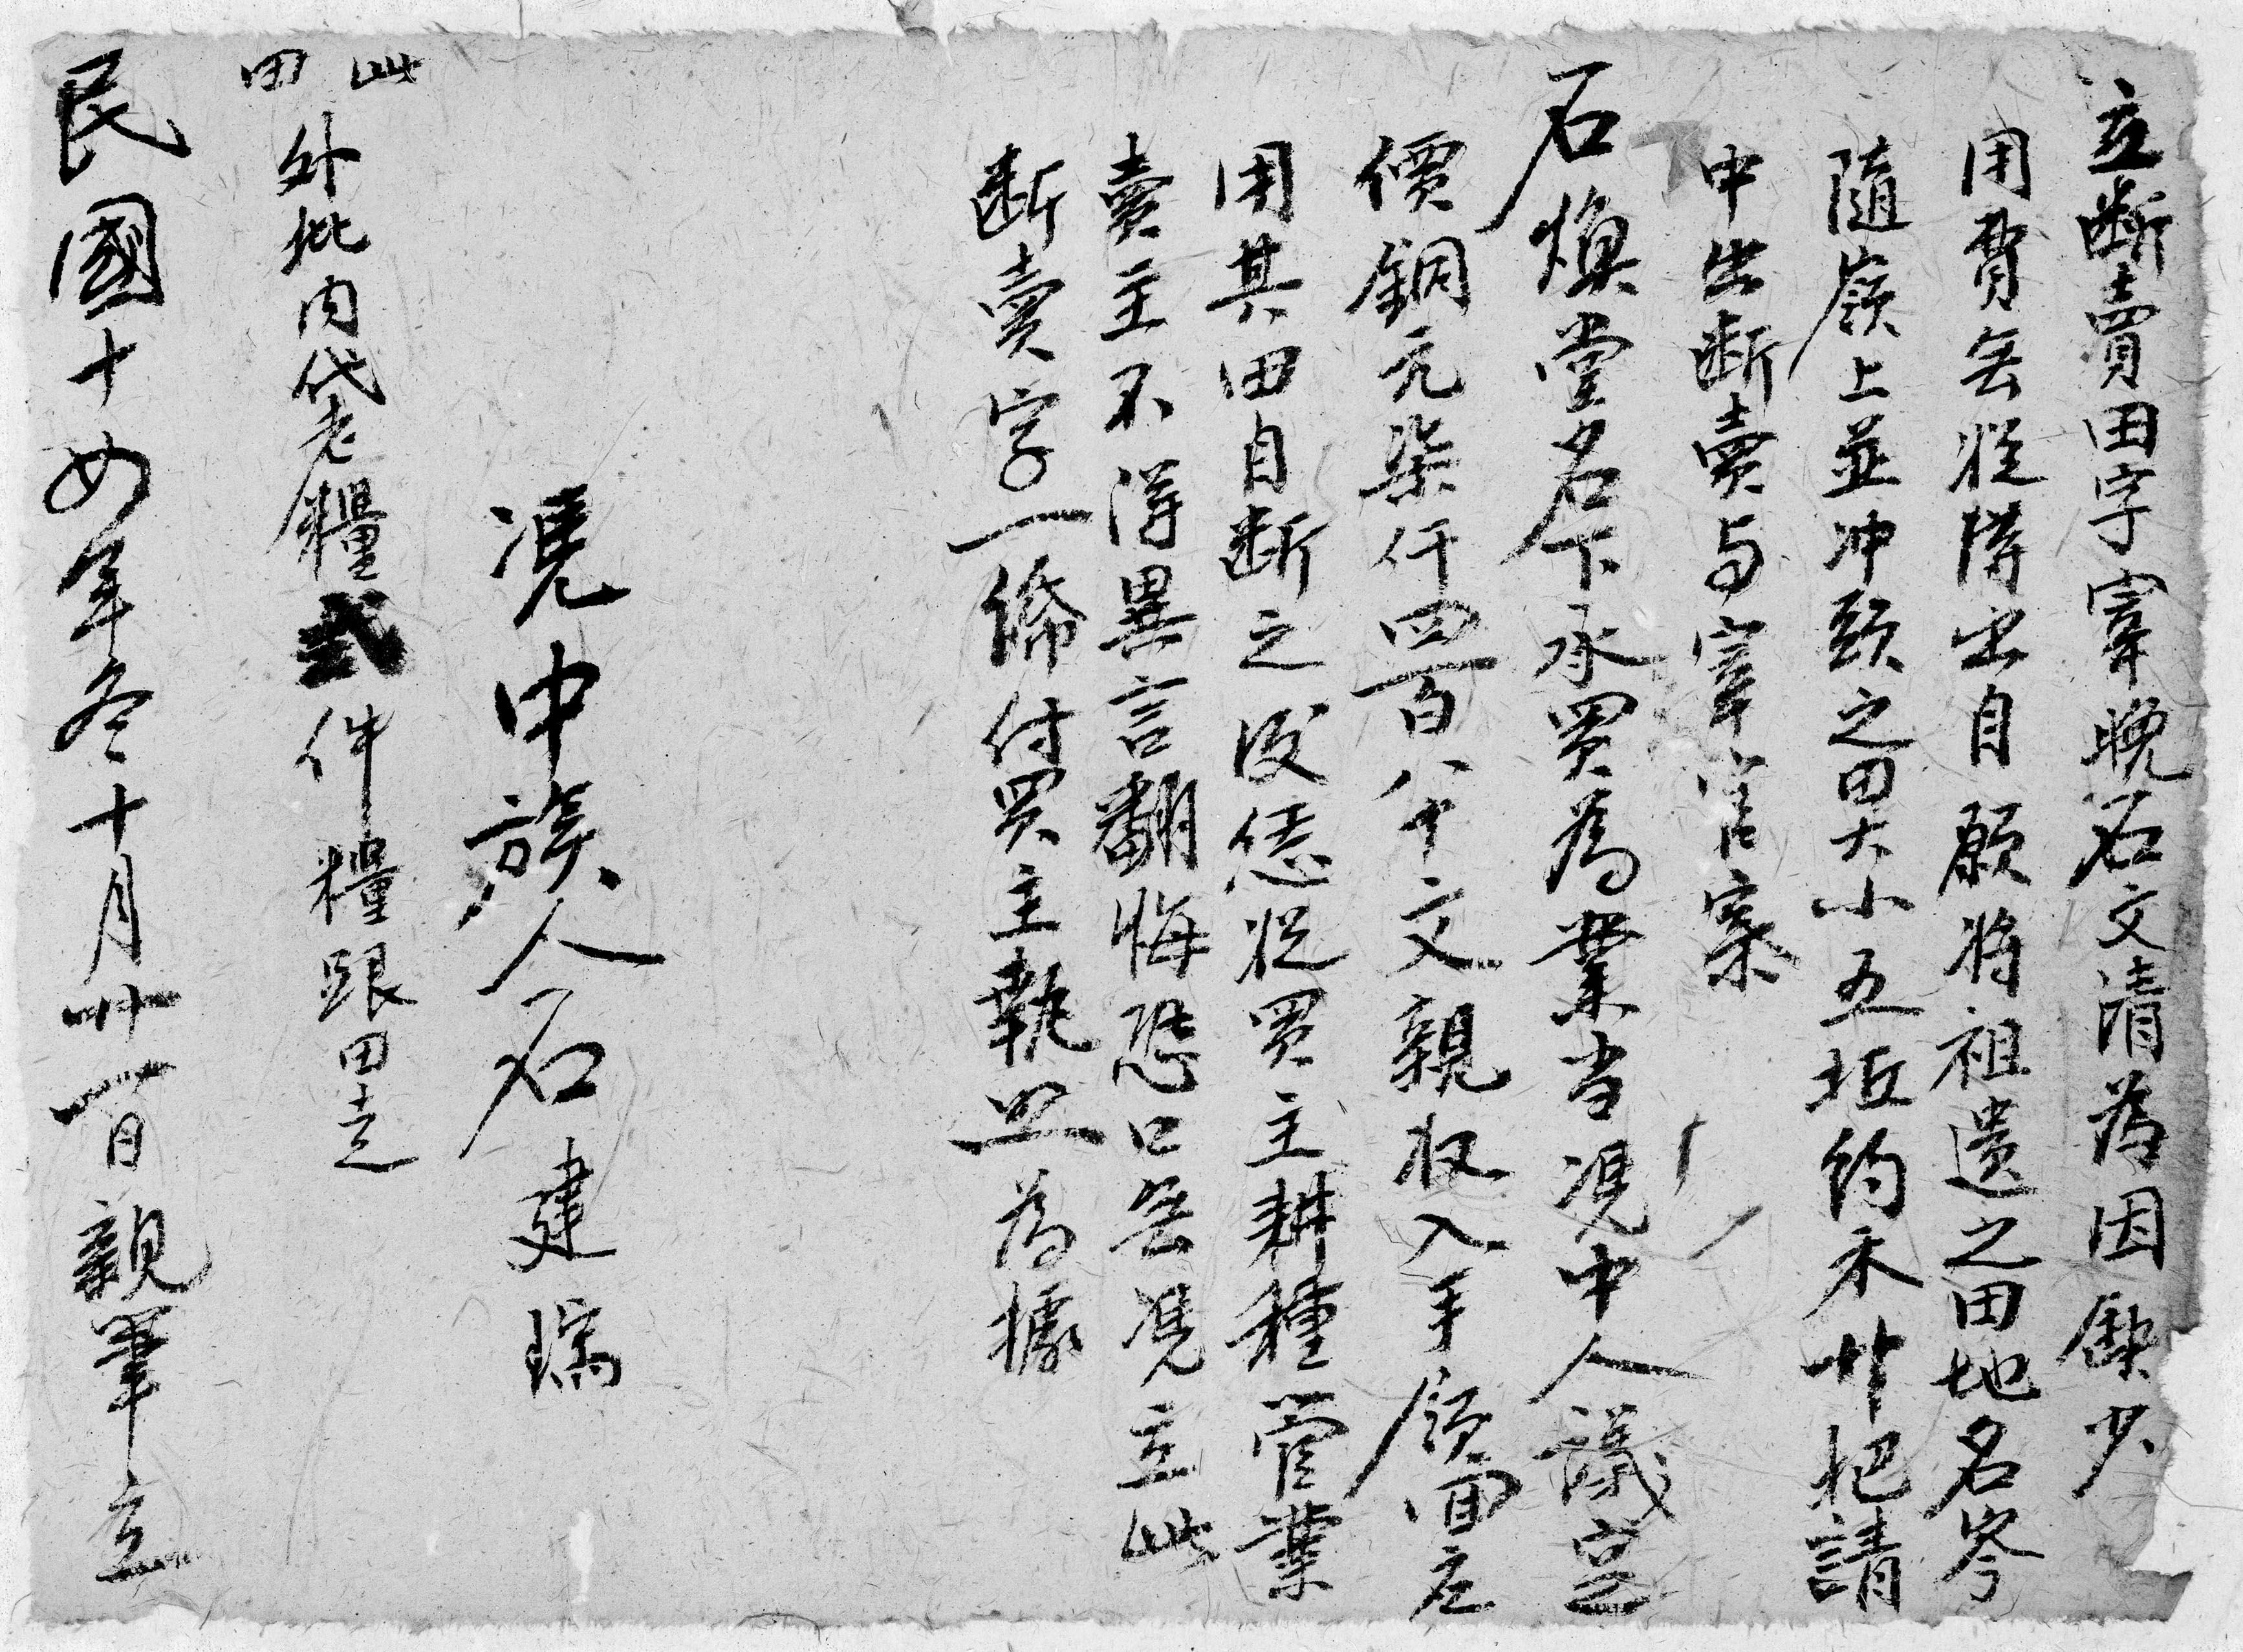 立断賣田字寨晚石文清為因缺少
用費無從措出自願将祖遺之田地名岑
隨嶺上並冲頭之田大小五坵約禾卄把請
中出断賣与寨官寨
石煥堂名下承買為業当凴中人議定
價銅元柒仟四百八十文親收入手領回应
用其田自断之後恁從買主耕種管業
賣主不得異言翻悔恐口無凴立此
断賣字一條付買主執照為據
凴中族人石建瑞
此田外批内代老糧弍件糧跟田走
民國十四年冬十月廿一日親筆立